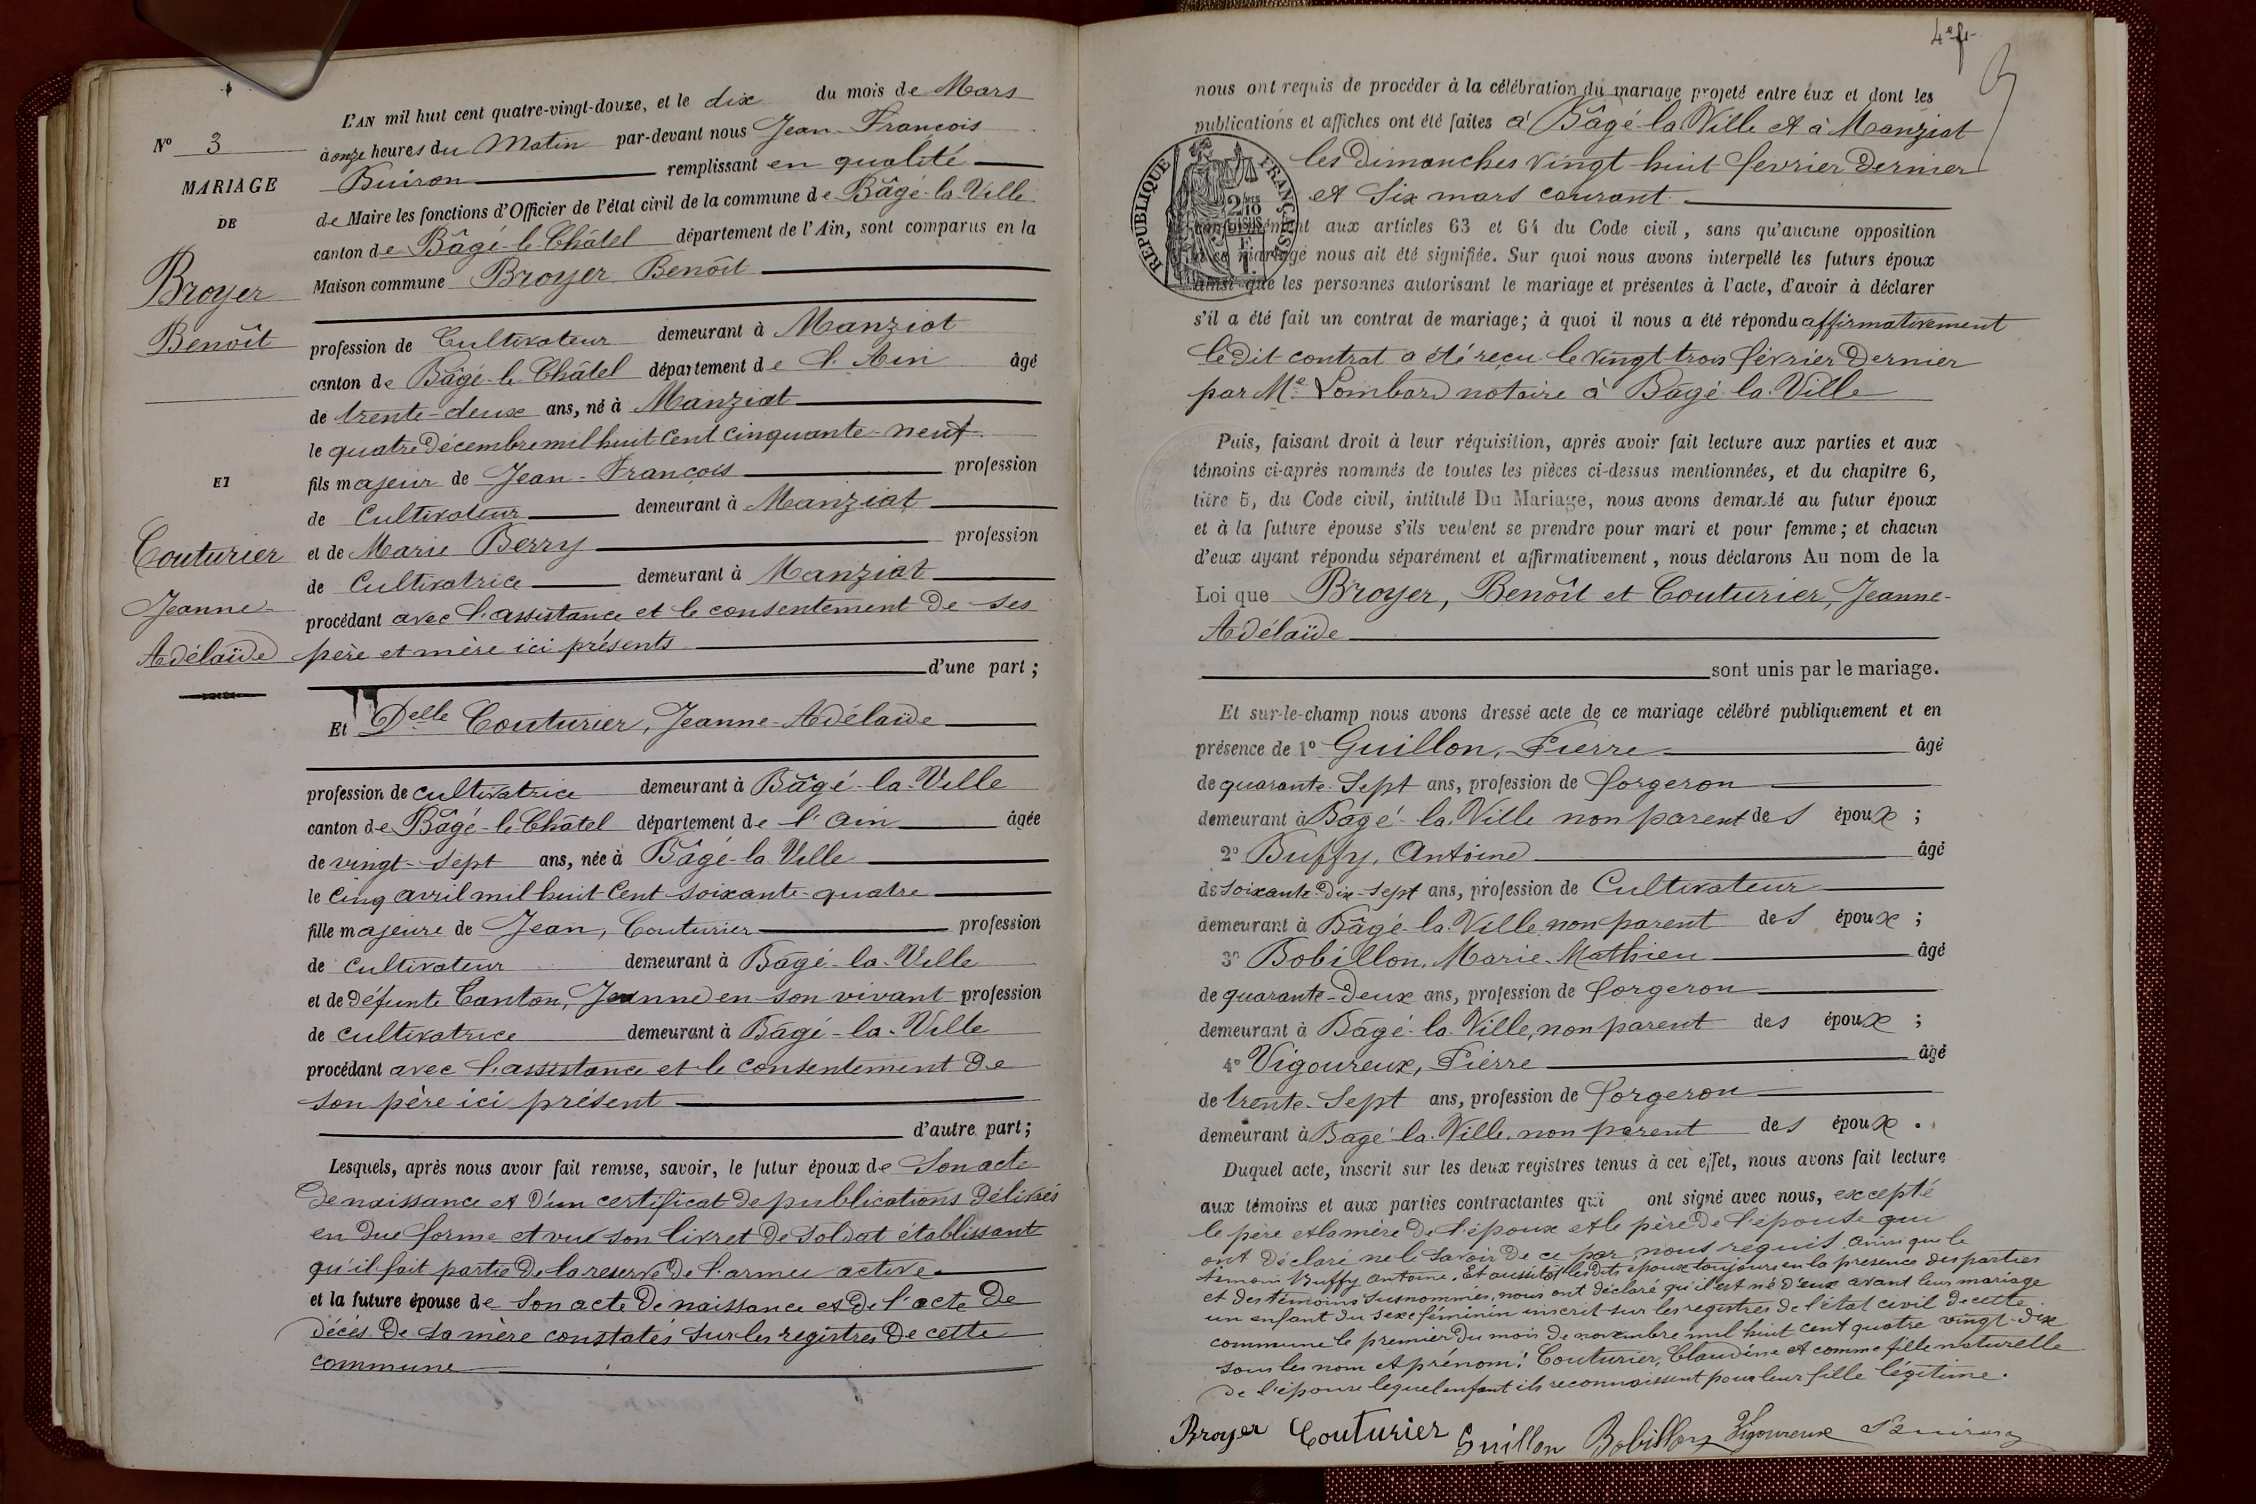 L'AN mil huit cent quatre-vingt-douze, et le dix du mois de Mars
à onze heures du Matin par-devant nous Jean-François
Buiron remplissant en qualité
de Maire les fonctions d'Officier de l'état civil de la commune de Bâgé-la-Ville
canton de Bâgé-le-Châtel département de l'Ain, sont comparus en la
Maison commune Broyer Benôit
profession de Cultivateur demeurant à Manziat
canton de Bâgé-le-Châtel département de l'Ain âgé
de trente-deux ans, né à Manziat
le quatre Décembre mil huit cent cinquante-neuf
fils majeur de Jean-François profession
de Cultivateur demeurant à Manziat
et de Marie Berry profession
de Cultivatrice demeurant à Manziat
procédant avec l'assistance et le consentement de ses
père et mère ici présents
d'une part ;
Et Delle Couturier, Jeanne-Adélaïde
profession de cultivatrice demeurant à Bâgé-la-Ville
canton de Bâgé-le-Châtel département de l'Ain âgée
de vingt-sept ans, née à Bâgé-la-Ville
le cinq avril mil huit cent soixante-quatre
fille majeure de Jean, Couturier profession
de cultivateur demeurant à Bâgé-la-Ville
et de défunte Canton, Jeanne en son vivant profession
de cultivatrice demeurant à Bâgé-la-Ville
procédant avec l'assistance et le consentement de
son père ici présent
d'autre part ;
Lesquels, après nous avoir fait remise, savoir, le futur époux de son acte
de naissance et d'un certificat de publications délivrés
en due forme et vu son livret de soldat établissant
qu'il fait partie de la reserve de l'armée active
et la future épouse de son acte de naissance et de l'acte de
décès de sa mère constatés sur les registres de cette
commune
N° 3
MARIAGE
DE
Broyer
Benôit
ET
Couturier
Jeanne-
Adélaïde
4e
nous ont requis de procéder à la célébration du mariage projeté entre eux et dont les
publications et affiches ont été faites à Bâgé-la-Ville et à Manziat
les Dimanches vingt-huit fevrier dernier
et six mars courant
RÉPUBLIQUE FRANÇAISE
2/10 EN SUS
conformément aux articles 63 et 64 du Code civil, sans qu'aucune opposition
à ce mariage nous ait été signifiée. Sur quoi nous avons interpellé les futurs époux
ainsi que les personnes autorisant le mariage et présentes à l'acte, d'avoir à déclarer
s'il a été fait un contrat de mariage ; à quoi il nous a été répondu affirmativement
le dit contrat a été reçu le vingt-trois février dernier
par Me Lombard notaire à Bâgé-la-Ville
Puis, faisant droit à leur réquisition, après avoir fait lecture aux parties et aux
témoins ci-après nommés de toutes les pièces ci-dessus mentionnées, et du chapitre 6,
titre 5, du Code civil, intitulé Du Mariage, nous avons demandé au futur époux
et à la future épouse s'ils veulent se prendre pour mari et pour femme ; et chacun
d'eux ayant répondu séparément et affirmativement, nous déclarons Au nom de la
Loi que Broyer, Benôit et Couturier, Jeanne-
Adélaïde
sont unis par le mariage.
Et sur-le-champ nous avons dressé acte de ce mariage célébré publiquement et en
présence de 1° Guillon, Pierre âgé
de quarante-sept ans, profession de forgeron
demeurant à Bâgé-la-Ville non parent des époux ;
2° Buffy, Antoine âgé
de soixante-dix-sept ans, profession de Cultivateur
demeurant à Bâgé-la-Ville non parent des époux ;
3° Bobillon, Marie-Mathieu âgé
de quarante-deux ans, profession de forgeron
demeurant à Bâgé-la-Ville, non parent des époux ;
4° Vigoureux, Pierre âgé
de trente-sept ans, profession de forgeron
demeurant à Bâgé-la-Ville, non parent des époux.
Duquel acte, inscrit sur les deux registres tenus à cet effet, nous avons fait lecture
aux témoins et aux parties contractantes qui ont signé avec nous, excepté
le père et la mère de l'époux et le père de l'épouse qui
ont déclaré ne le savoir de ce par nous requis ainsi que le
témoin Buffy Antoine. Et aussitôt les dits époux toujours en la présence des parties
et des témoins susnommés, nous ont déclaré qu'il est né d'eux avant leur mariage
un enfant du sexe féminin inscrit sur les registres de l'état civil de cette
commune le premier du mois de novembre mil huit cent quatre vingt-dix
sous les nom et prénom : Couturier, Claudine et comme fille naturelle
de l'épouse lequel enfant ils reconnaissent pour leur fille légitime.
Broyer Couturier Guillon Bobillon Vigoureux Buiron